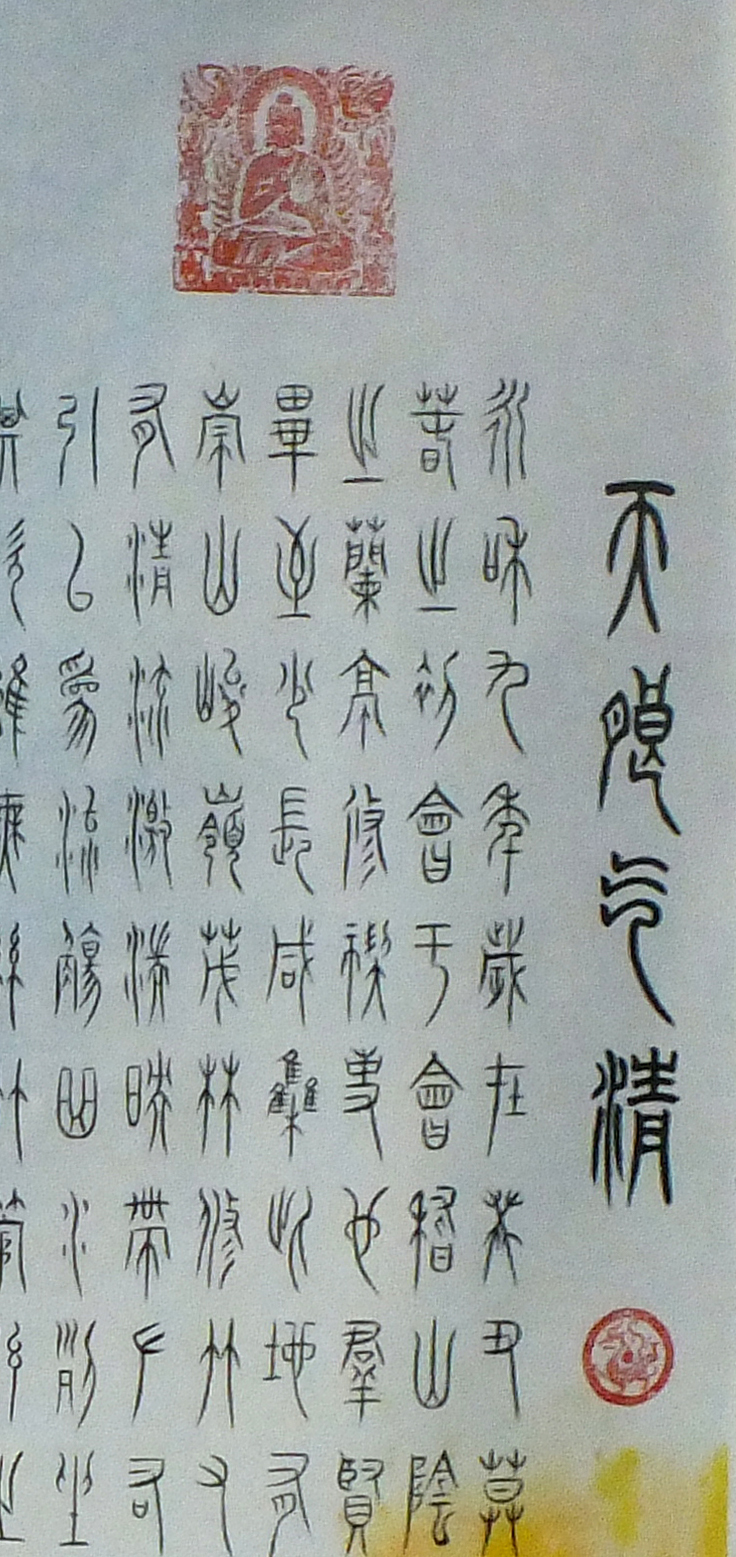 天朗气清
永和九年歲在癸丑暮
春之初會于會稽山陰
之蘭亭修禊事也羣賢
畢至少長咸集此地有
崇山峻嶺茂林修竹又
有清流激湍映帶左右
引以為流觴曲水列坐
其次雖無絲竹管弦之